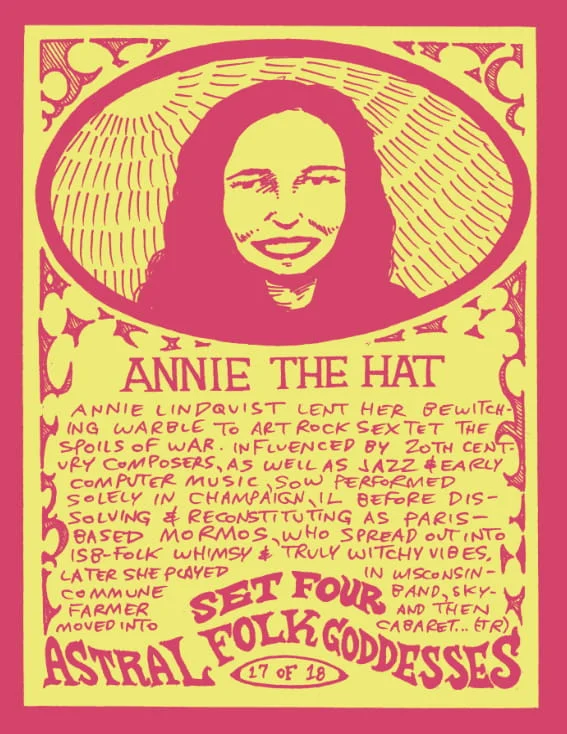 ANNIE THE HAT
ANNIE LINDQUIST LENT HER BEWITCH-
ING WARBLE TO ART ROCK SEXTET THE
SPOILS OF WAR. INFLUENCED BY 20TH CENT-
URY COMPOSERS, AS WELL AS JAZZ & EARLY
COMPUTER MUSIC, SOW PERFORMED
SOLELY IN CHAMPAIGN, IL BEFORE DIS-
SOLVING & RECONSTITUTING AS PARIS-
BASED MORMOS, WHO SPREAD OUT INTO
ISB-FOLK WHIMSY & TRULY WITCHY VIBES.
LATER SHE PLAYED IN WISCONSIN-
COMMUNE BAND, SKY-
FARMER AND THEN
MOVED INTO CABARET... (TR)
SET FOUR
ASTRAL FOLK GODDESSES
17 OF 18